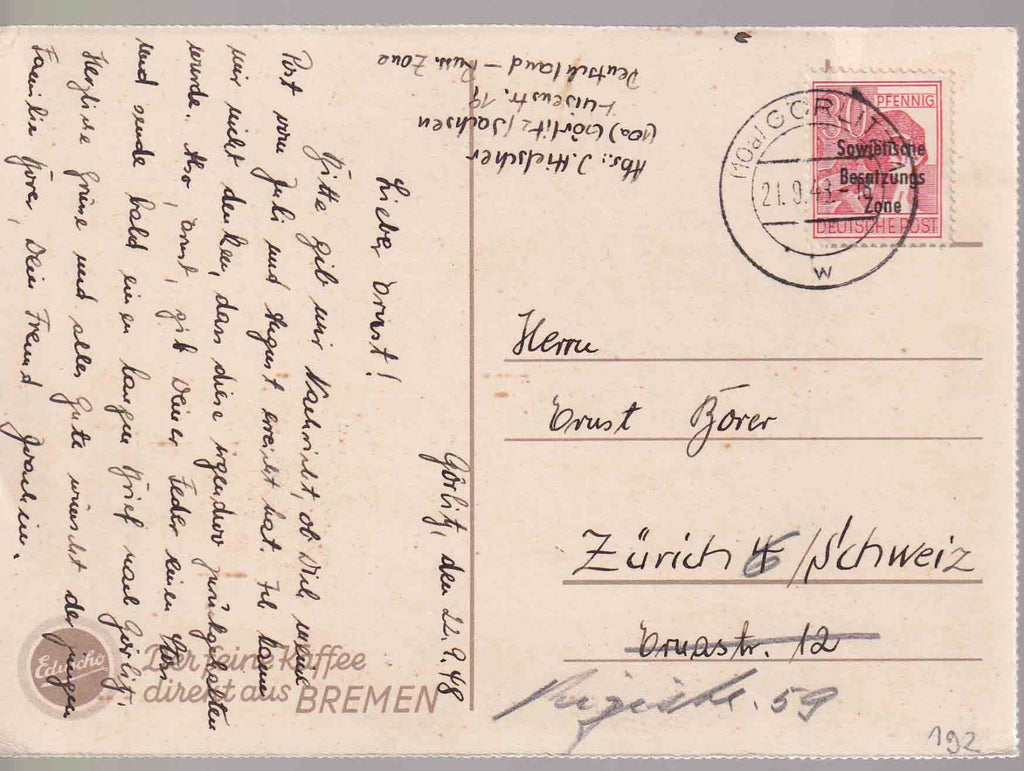 Görlitz, den 22.9.48
Lieber Ernst!
Bitte gib mir Nachricht, ob Dich meine
Post vom Juli und August erreicht hat. Ich kann
mir nicht denken, dass diese irgendwo zurückgehalten
wurde. Also, Ernst, gib Deiner Feder einen
und sende bald einen langen Brief nach Görlitz.
Herzliche Grüsse und alles Gute wünscht der jungen
Familie Börer, Dein Freund Joachim.
Abs.: J. Hielscher
(10a) Görlitz/Sachsen
Luisenstr. 19
Deutschland – Russ. Zone
(10a) GÖRLITZ
21.9.48.-18
w
80 PFENNIG
Sowjetische
Besatzungs
Zone
DEUTSCHE POST
Herrn
Ernst Börer
Zürich 6 /Schweiz
Ernastr. 12
59
Eduscho
Der feine Kaffee
direkt aus BREMEN
192